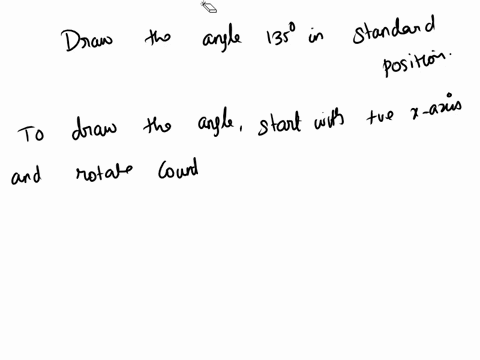 Draw the angle 135° in standard
position.
To draw the angle, start with +ve x-axis
and rotate Count